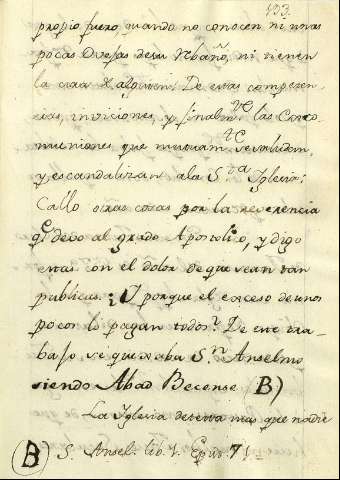 193.
propio fuero quando no conocen ni unas
pocas Ovejas de su Rbaño, ni tienen
la cura d alguien! De estas competen-
cias, inviciones, y finalm.te las Exco
muniones que mutuam.te se valuden,
y escandalizan a la S.ta Iglesia:
Callo otras cosas por la reverencia
q.e devo al grado Apostolico, y digo
estas con el dolor de que sean tan
publicas: ¿Y porque el exceso de unos
pocos lo pagan todos? De este tra-
bajo se quexaba S.n Anselmo
siendo Abad Becense (B)
La Iglesia detesta mas que nadie
(B) S. Ansel. lib. 1. Epis. 71.=